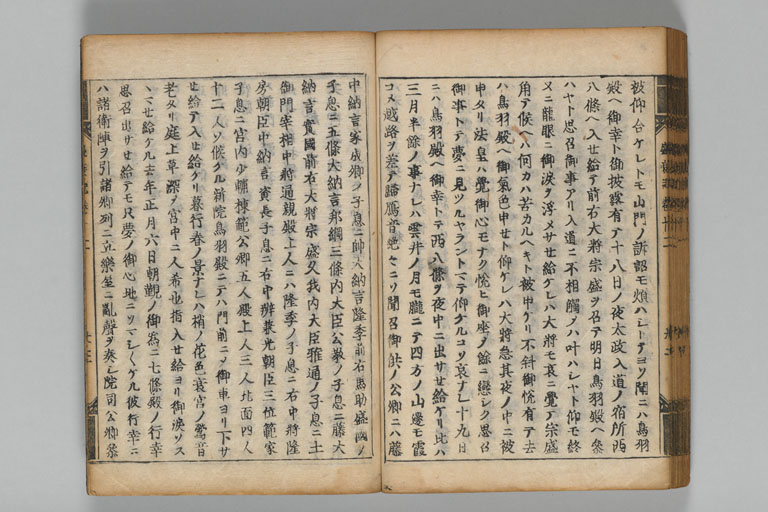 被仰合ケレトモ山門ノ訴詔モ煩ハシトテヨソ聞ニハ鳥羽
殿ヘ御幸ト御披露有テ十八日ノ夜太政入道ノ宿所西
八條ヘ入せ給テ前右大將宗盛ヲ召テ明日鳥羽殿ヘ參
ハヤト思召御事アリ入道ニ不相觸ノハ叶ハシヤト仰モ終
ヌニ龍眼ニ御淚ヲ浮メサせ給ケレハ大將モ哀ニ覺テ宗盛
角テ候ヘハ何カハ苦カルヘキト被申ケリ不斜御悅有テ去
ハ鳥羽殿ヘ御氣色申せト仰ケレハ大將急其夜ノ中ニ被
申タリ法皇ハ覺御心モナク悅ヒ御座ノ餘ニ戀シク思召
御事トテ夢ニ見ツルヤラントマテ仰ケルコソ哀ナレ十九日
ニハ鳥羽殿ヘ御幸トテ西八條ヲ夜中ニ出サせ給ケリ比ハ
三月半餘ノ事ナレハ雲井ノ月モ朧ニテ四方ノ山邊モ霞
コメ越路ヲ差テ歸鴈音絕〱ニソ聞召御供ノ公卿ニハ藤
中納言家成卿ノ子息ニ帥大納言隆季前右馬助盛國ノ
子息ニ五條大納言邦綱三條内大臣公教ノ子息ニ藤大
納言實國前右大將宗盛久我内大臣雅通ノ子息ニ土
御門宰相中將通親殿上人ニハ隆季ノ子息ニ右中將隆
房朝臣中納言資長子息ニ右中辨兼光朝臣三位範家
子息ニ宮内少輔棟範公卿五人殿上人三人北面四人
十二人ソ候ケル新院鳥羽殿ニテハ門前ニソ御車ヨリ下サ
せ給テ入せ給ケリ暮行春ノ景ナレハ梢ノ花色衰宮ノ鶯音
老タリ庭上草深ク宮中ニ人希也指入せ給ヨリ御淚ソス
ヽマせ給ケル去年正月六日朝覲ノ御爲ニ七條殿ノ行幸
思召出サせ給テモ只夢ノ御心地ニソマシ〱ケル彼行幸ニ
ハ諸衛陣ヲ引諸卿列ニ立樂屋ニ亂聲ヲ奏シ院司公卿參